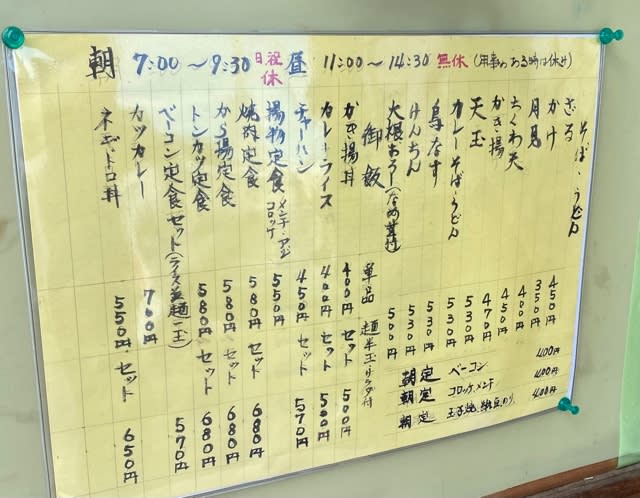 朝 7:00～9:30 日祝休 昼 11:00～14:30 無休 (用事のある時は休み)
そば・うどん
ざる 450円
かけ 350円
月見 400円
ちくわ天 450円
かき揚 470円
天玉 530円
カレーそば・うどん 530円
鳥なす 530円
けんちん 530円
大根おろし(なめ茸付) 500円
御飯 単品 麺半玉サラダ付
かき揚丼 400円 セット 500円
カレーライス 400円 セット 500円
チャーハン 450円 セット 570円
揚物定食 メンチ・アジ コロッケ 550円
焼肉定食 580円 セット 680円
から揚定食 580円 セット 680円
トンカツ定食 580円 セット 680円
ベーコン定食セット(ライス並麺一玉) 570円
カツカレー 700円
ネギトロ丼 550円 セット 650円
朝定 ベーコン 400円
朝定 コロッケ、メンチ 400円
朝定 玉子焼、納豆、のり 400円